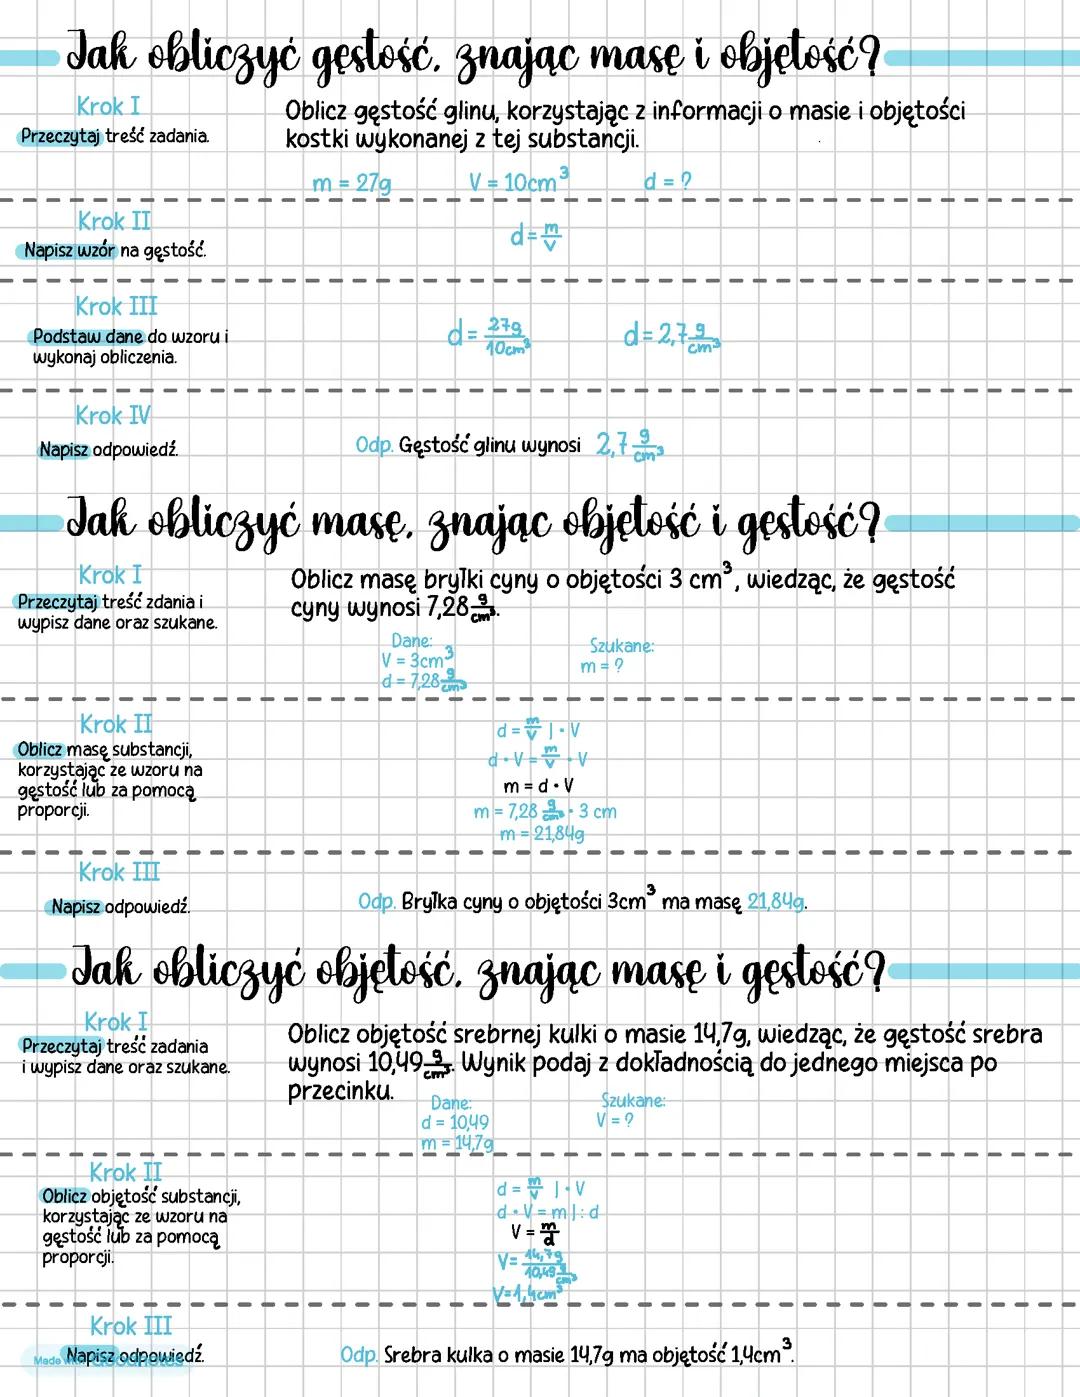 Jak obliczyć gęstość, znając masę i objętość?
Krok I
Przeczytaj treść zadania.
Oblicz gęstość glinu, korzystając z informacji o masie i objętości
kostki wykonanej z tej substancji.
m = 27g V = 10cm³ d = ?
Krok II
Napisz wzór na gęstość.
d = m/V
Krok III
Podstaw dane do wzoru i
wykonaj obliczenia.
d = 27g/10cm³ d = 2,7 g/cm³
Krok IV
Napisz odpowiedź.
Odp. Gęstość glinu wynosi 2,7 g/cm³
Jak obliczyć masę, znając objętość i gęstość?
Krok I
Przeczytaj treść zdania i
wypisz dane oraz szukane.
Oblicz masę bryłki cyny o objętości 3 cm³, wiedząc, że gęstość
cyny wynosi 7,28 g/cm³.
Dane:
V = 3cm³
d = 7,28 g/cm³
Szukane:
m = ?
Krok II
Oblicz masę substancji,
korzystając ze wzoru na
gęstość lub za pomocą
proporcji.
d = m/V | · V
d · V = m/V · V
m = d · V
m = 7,28 g/cm³ · 3 cm
m = 21,84g
Krok III
Napisz odpowiedź.
Odp. Bryłka cyny o objętości 3cm³ ma masę 21,84g.
Jak obliczyć objętość, znając masę i gęstość?
Krok I
Przeczytaj treść zadania
i wypisz dane oraz szukane.
Oblicz objętość srebrnej kulki o masie 14,7g, wiedząc, że gęstość srebra
wynosi 10,49 g/cm³. Wynik podaj z dokładnością do jednego miejsca po
przecinku.
Dane:
d = 10,49
m = 14,7g
Szukane:
V = ?
Krok II
Oblicz objętość substancji,
korzystając ze wzoru na
gęstość lub za pomocą
proporcji.
d = m/V | · V
d · V = m | : d
V = m/d
V = 14,7g/10,49 g/cm³
V = 1,4cm³
Krok III
Napisz odpowiedź.
Made with Goodnotes
Odp. Srebra kulka o masie 14,7g ma objętość 1,4cm³.